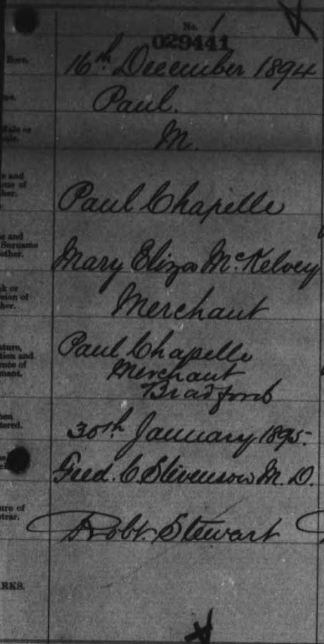 No.
029441
Born.
16th December 1894
Paul.
Male or
M.
and
of
Paul Chapelle
and
Surname
Mary Eliza McKelvey
or
of
Merchant
and
of
Paul Chapelle
Merchant
Bradford
30th January 1895.
Fred. C Stevenson M. D.
of
Robt Stewart
RKS.